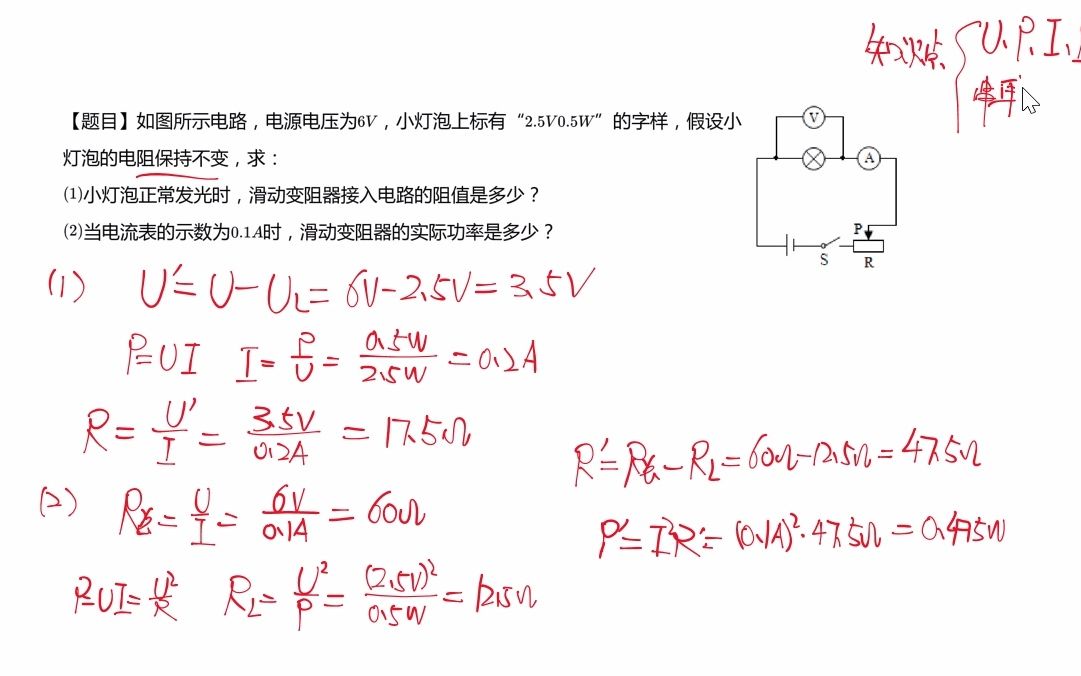 知识点 { U、P、I、
串连
【题目】如图所示电路，电源电压为6V，小灯泡上标有“2.5V0.5W”的字样，假设小
灯泡的电阻保持不变，求：
⑴小灯泡正常发光时，滑动变阻器接入电路的阻值是多少？
⑵当电流表的示数为0.1A时，滑动变阻器的实际功率是多少？
V
A
P
S
R
(1) U′=U-U_L=6V-2.5V=3.5V
P=UI I=P/U=0.5W/2.5W=0.2A
R=U′/I=3.5V/0.2A=17.5Ω
(2) R总=U/I=6V/0.1A=60Ω
P=UI=U²/R R_L=U²/P=(2.5V)²/0.5W=12.5Ω
R′=R总-R_L=60Ω-12.5Ω=47.5Ω
P′=I²R′=(0.1A)²·47.5Ω=0.475W